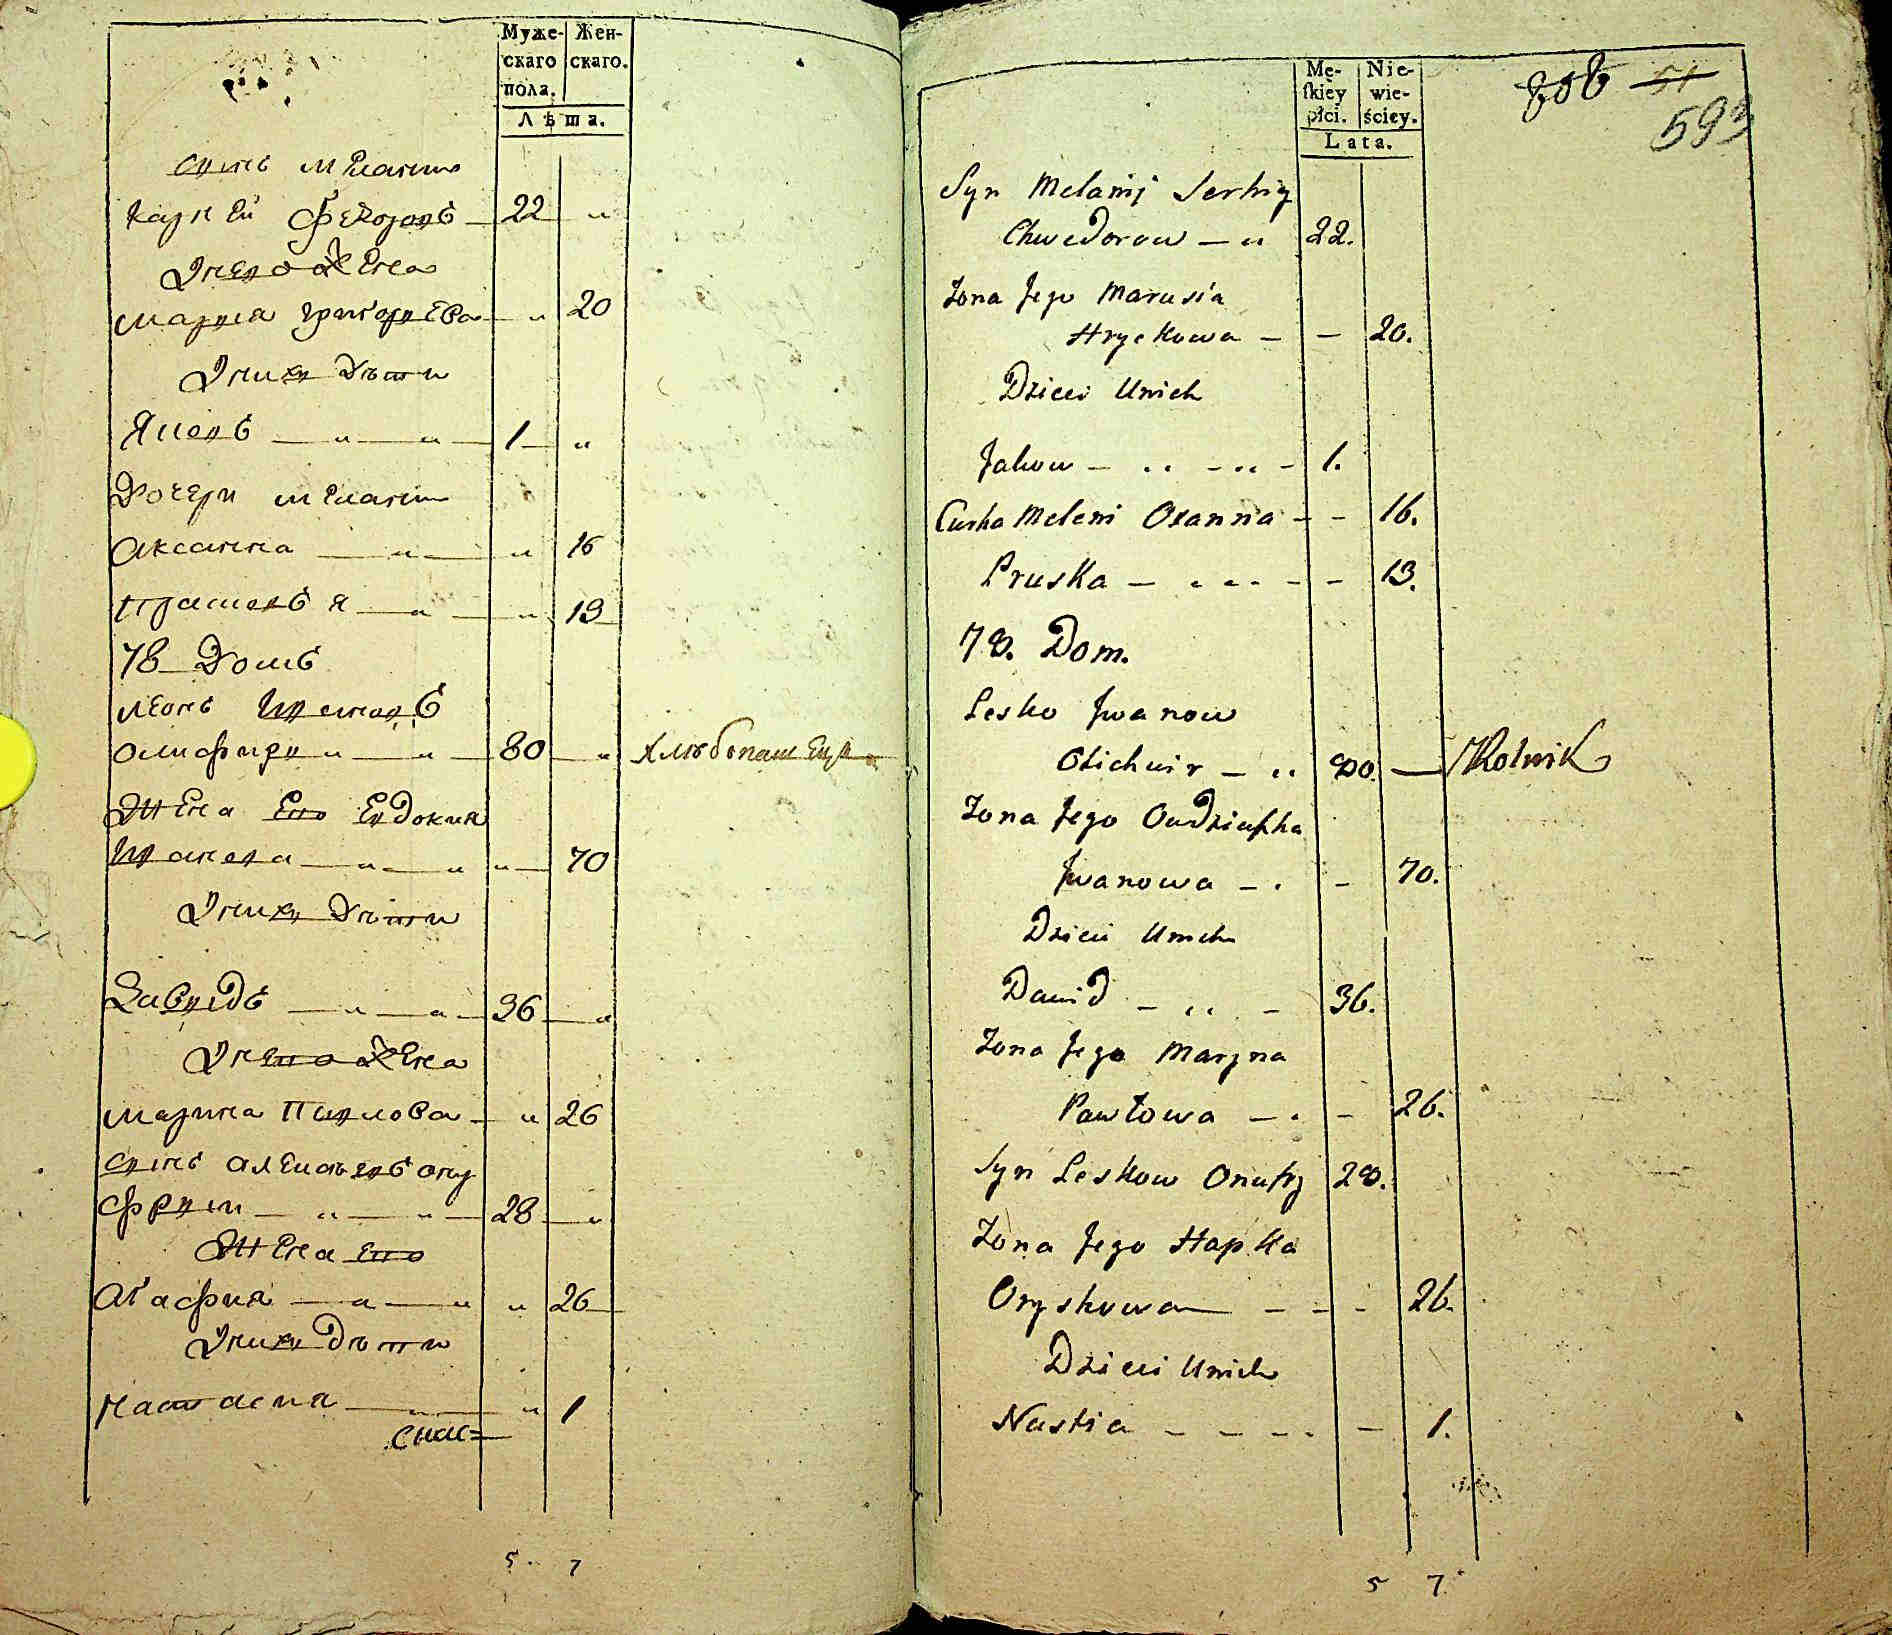 Муже-
скаго
пола.
Жен-
скаго.
Лѣта.
сынъ мелании
Федоровъ 22 „
У него жена
Маруся григорьева „ 20
У них дѣти
Яковъ 1 „
Дочери мелании
Аксанна „ 16
Прасковья „ 13
78 Домъ
леонъ Ивановъ
олифиръ 80 „ хлѣбопашецъ
Жена его Евдокия
Иванова „ 70
У них дѣти
Давидъ 36 „
У него жена
Марина Павлова „ 26
сынъ ону
фрии 28 „
Жена его
Агафия „ 26
У них дѣти
Настасия „ 1
5 7
Mę-
skiey
płci.
Nie-
wie-
ściey.
Lata.
51
593
Syn Melanij Serhiy
Chwedorow 22.
Zona Jego Marusia
Hryckowa 20.
Dzieci Unich
Jakow 1.
Curka Meleni Oxanna 16.
Pruska 13.
78. Dom.
Lesko Jwanow
Olichwir 80. Rolnik
Zona Jego Oudziuska
Jwanowa 70.
Dzieci Unich
Dawid 36.
Zona Jego Maryna
Pawłowa 26.
Syn Leskow Onufry 28.
Zona Jego Hapka
Oryskowa 26.
Dzieci Unich
Nastia 1.
5 7